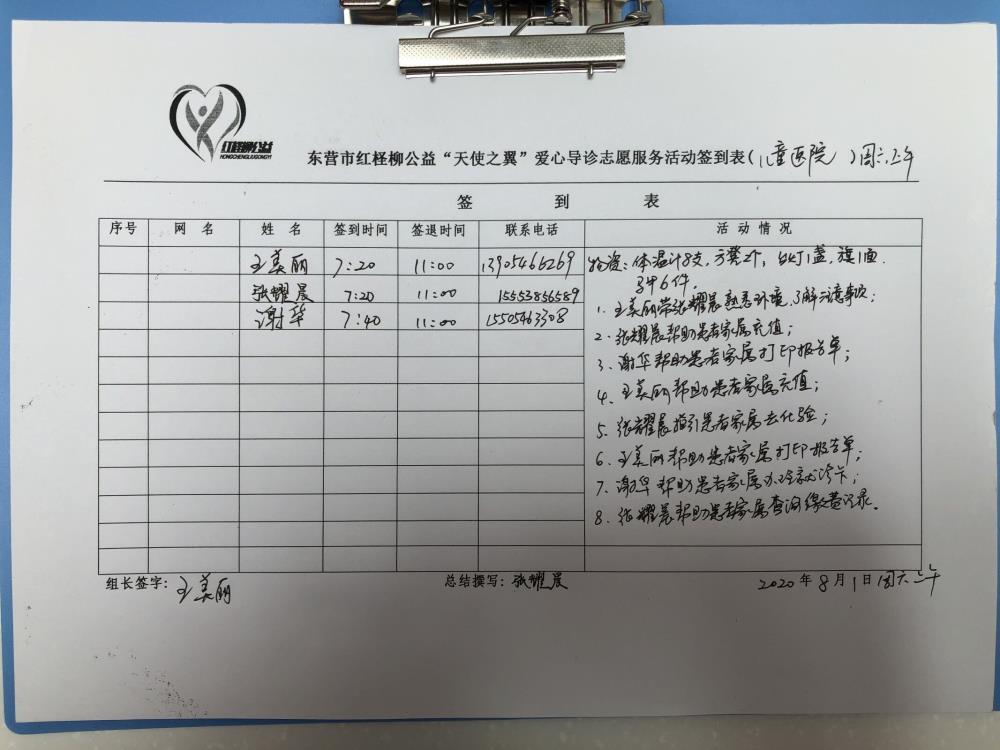 红柽柳公益
HONGCHENGLIUGONGYI
东营市红柽柳公益“天使之翼”爱心导诊志愿服务活动签到表(儿童医院)周六上午
签 到 表
序号 网 名 姓 名 签到时间 签退时间 联系电话 活 动 情 况
王美丽 7:20 11:00 13905466269 物资:体温计8支,方凳2个,台灯1盏,旗1面
马甲6件.
张耀晨 7:20 11:00 15553856589 1、王美丽带张耀晨熟悉环境,了解注意事项;
谢华 7:40 11:00 15505463308 2、张耀晨帮助患者家属充值;
3、谢华帮助患者家属打印报告单;
4、王美丽帮助患者家属充值;
5、张耀晨指引患者家属去化验;
6、王美丽帮助患者家属打印报告单;
7、谢华帮助患者家属办理就诊卡;
8、张耀晨帮助患者家属查询缴费记录。
组长签字:王美丽 总结撰写:张耀晨 2020年8月1日周六上午